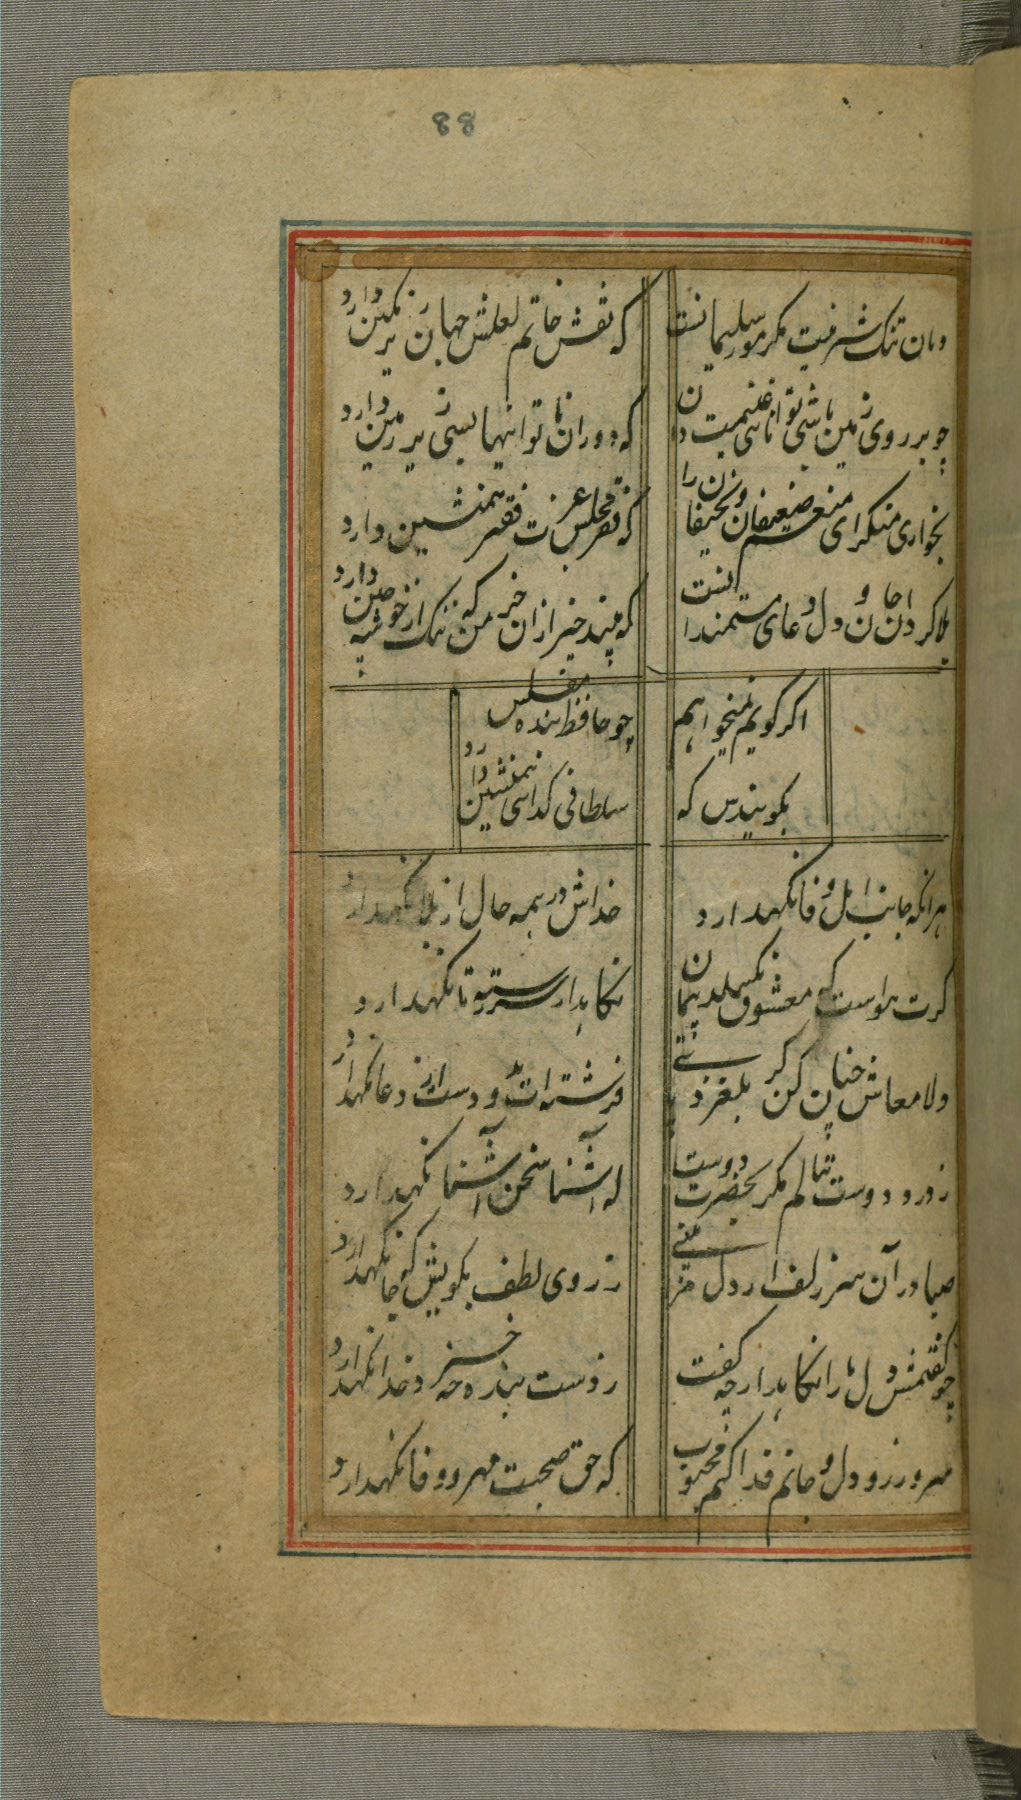 88
دهان تنک شیرینیت مکر مور سلیمانست
که نقش خاتم لعلش جهان زیر نکین دارد
چو بر روی زمین باشی توانائی غنیمت دان
که دوران ناتوانیها بسی زیر زمین دارد
بخواری منکر ای منعم ضعیفان و نحیفان را
که در مجلس عزت فقیر همنشین دارد
بلا کردان جان و دل دعای مستمندانست
که بیند خیر از ان خرمن که ننک از خوشه چین دارد
اکر کویم نمیخواهم
چو حافظ بنده مفلس
بکویندس که
سلطانی کدائی همنشین دارد
هر انکه جانب اهل وفا نکهدارد
خداش در همه حال از بلا نکهدارد
کرت هواست که معشوق نکسلد پیمان
نکاهدار سر رشته تا نکهدارد
دلا معاش چنان کن کر بلغزد پای
فرشته ات بدو دست دعا نکهدارد
ز درد دوست ننالم مکر بحضرت دوست
که آشنا سخن آشنا نکهدارد
صبا در آن سر زلف ار دل مرا بینی
ز روی لطف بکویش که جا نکهدارد
چو کفتمش دل ما را نکاهدار چه کفت
ز دست بنده چه خیزد خدا نکهدارد
سر و زر و دل و جانم فدای آن محبوب
که حق صحبت مهر و وفا نکهدارد